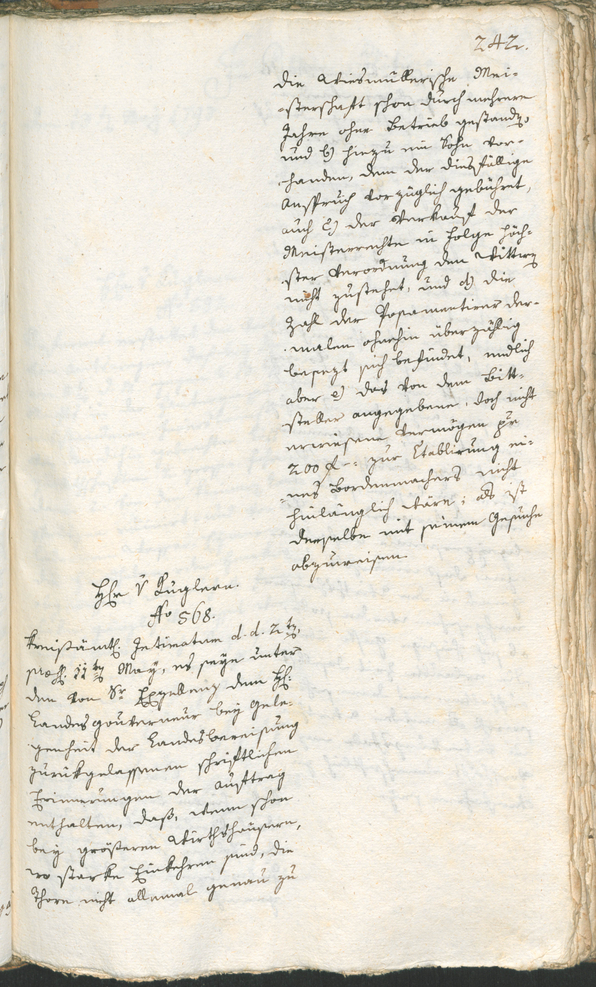 242.
die Wiesmüllerische Mei-
-sterschaft schon durch mehrere
Jahre ohne Betrieb gestanden,
und b) hiezu ein Sohn vor-
-handen, dem der diesfällige
Anspruch vorzüglich gebühret,
auch c) der Verkauf der
Meisterrechte in Folge höch-
-ster Verordnung den Wittwen
nicht zustehet, und d) die
Zahl der Posamentirer der-
-malen ohnehin überzählig
besezt sich befindet, endlich
aber e) das von dem Bitt-
-steller angegebene, doch nicht
erwiesene Vermögen pr
200 f -: zur Etablirung ei-
-nes Bordenmachers nicht
hinlänglich wäre; als ist
derselbe mit seinem Gesuche
abzuweisen.
Hr v Kuglern.
No 568.
Kreisämtl. Intimatum d. d. 2ten
praes. 11ten May, es seye unter
den von Sr Exzellenz dem H:
Landesgouverneur bey Gele-
genheit der Landesbereisung
zurückgelassenen schriftlichen
Erinnerungen der Auftrag
enthalten, daß, wenn schon
bey größeren Wirthshäusern,
wo starke Einkehren sind, die
Thore nicht allemal genau zu